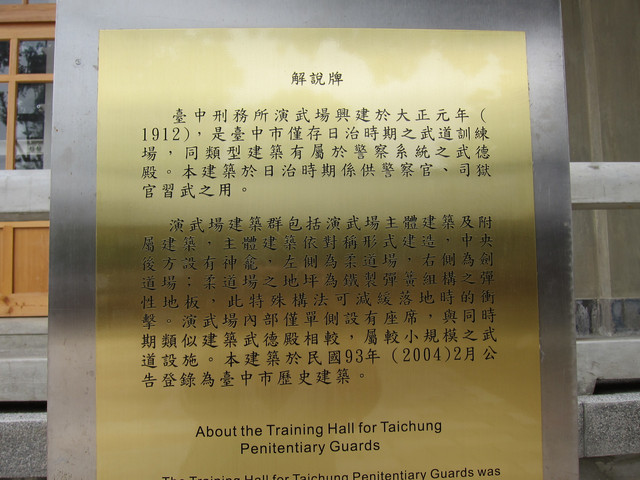 解說牌
臺中刑務所演武場興建於大正元年(
1912)，是臺中市僅存日治時期之武道訓練
場，同類型建築有屬於警察系統之武德
殿。本建築於日治時期係供警察官、司獄
官習武之用。
演武場建築群包括演武場主體建築及附
屬建築，主體建築依對稱形式建造，中央
後方設有神龕，左側為柔道場，右側為劍
道場；柔道場之地坪為鐵製彈簧組構之彈
性地板，此特殊構法可減緩落地時的衝
擊。演武場內部僅單側設有座席，與同時
期類似建築武德殿相較，屬較小規模之武
道設施。本建築於民國93年 (2004)2月公
告登錄為臺中市歷史建築。
About the Training Hall for Taichung
Penitentiary Guards
The Training Hall for Taichung Penitentiary Guards was